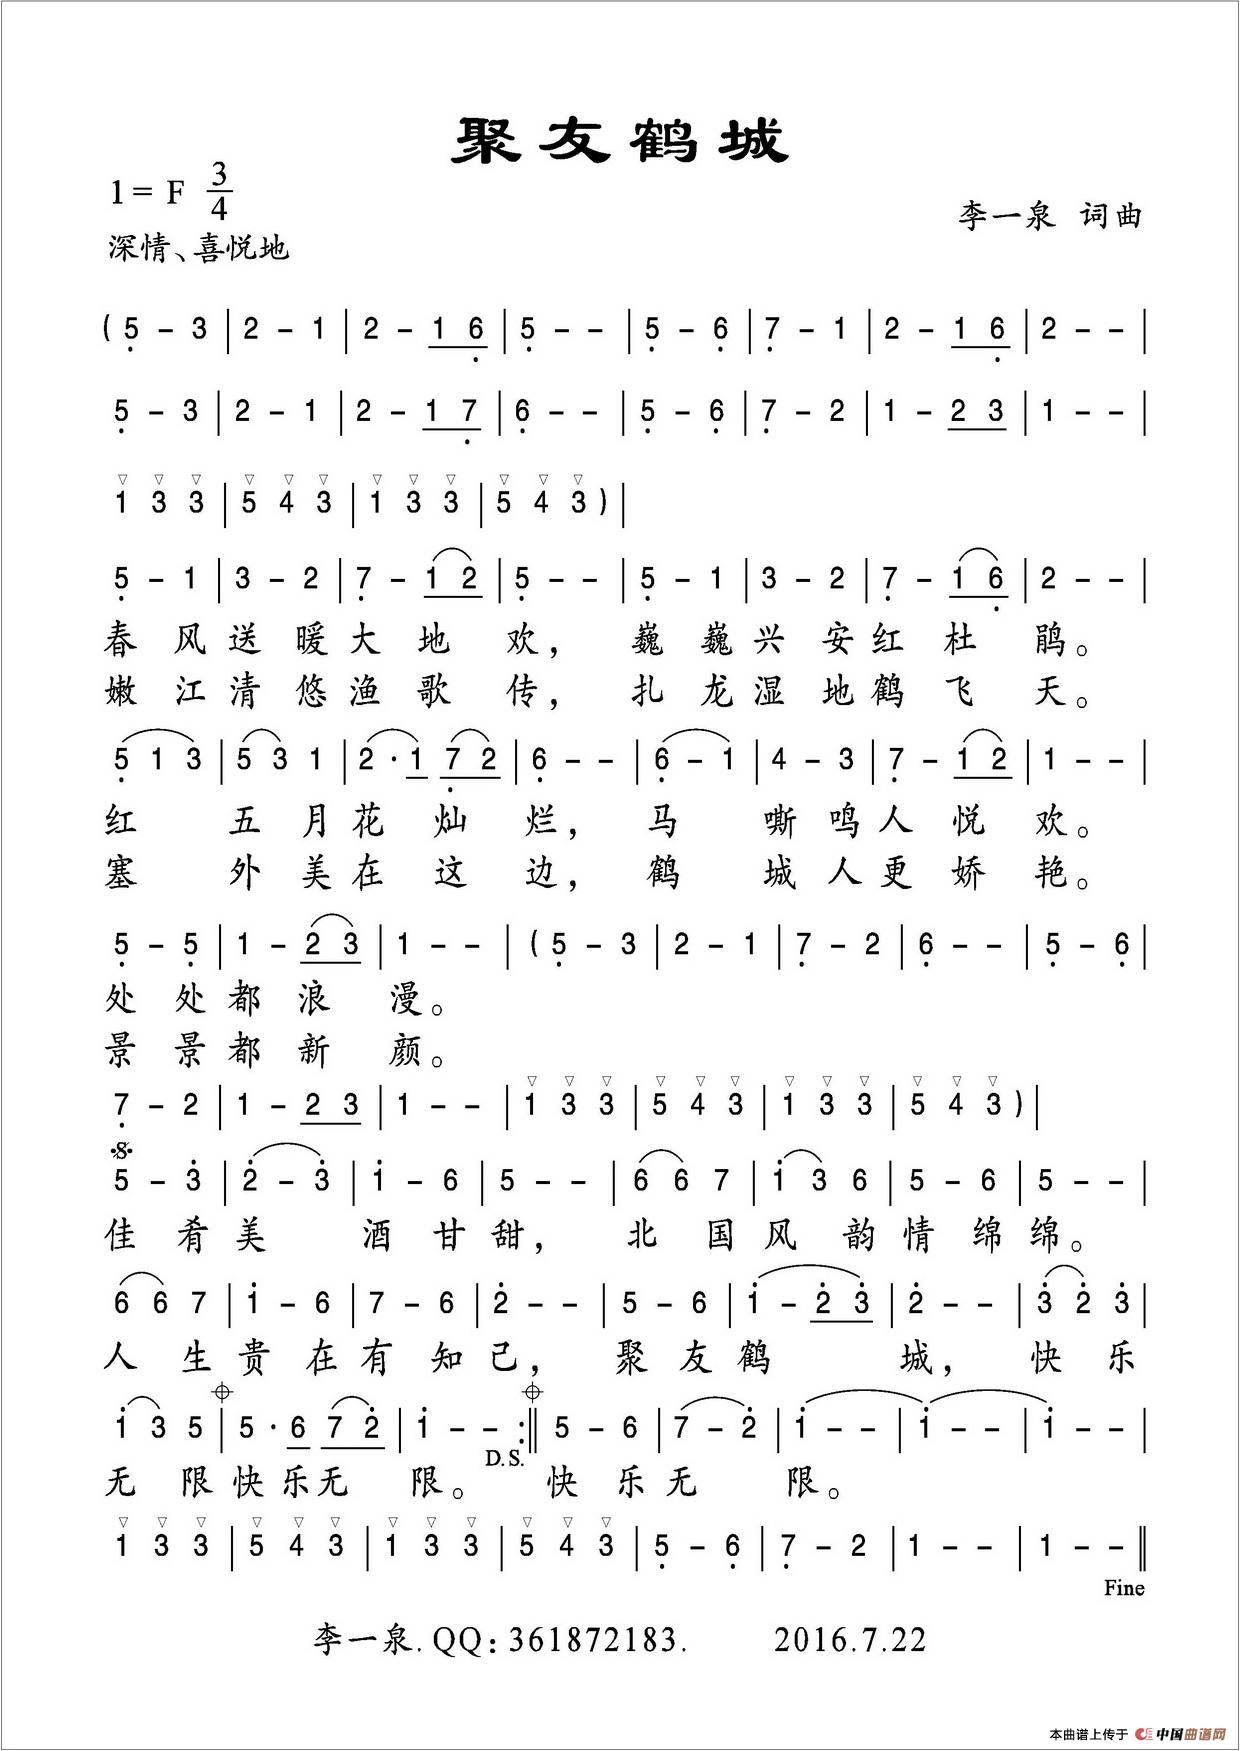 聚友鹤城
1= F 3/4
李一泉 词曲
深情、喜悦地
( 5̣ – 3 | 2 – 1 | 2 – 1 6̣ | 5̣ – – | 5̣ – 6̣ | 7̣ – 1 | 2 – 1 6̣ | 2 – – |
5̣ – 3 | 2 – 1 | 2 – 1 7̣ | 6̣ – – | 5̣ – 6̣ | 7̣ – 2 | 1 – 2 3 | 1 – – |
1 3 3 | 5 4 3 | 1 3 3 | 5 4 3 ) |
5̣ – 1 | 3 – 2 | 7̣ – 1 2 | 5̣ – – | 5̣ – 1 | 3 – 2 | 7̣ – 1 6̣ | 2 – – |
春风送暖大地欢，巍巍兴安红杜鹃。
嫩江清悠渔歌传，扎龙湿地鹤飞天。
5̣ 1 3 | 5 3 1 | 2 · 1 7̣ 2 | 6̣ – – | 6̣ – 1 | 4 – 3 | 7̣ – 1 2 | 1 – – |
红五月花灿烂，马嘶鸣人悦欢。
塞外美在这边，鹤城人更娇艳。
5̣ – 5̣ | 1 – 2 3 | 1 – – | ( 5̣ – 3 | 2 – 1 | 7̣ – 2 | 6̣ – – | 5̣ – 6̣ |
处处都浪漫。
景景都新颜。
7̣ – 2 | 1 – 2 3 | 1 – – | 1 3 3 | 5 4 3 | 1 3 3 | 5 4 3 ) |
5 – 3̇ | 2̇ – 3̇ | 1̇ – 6 | 5 – – | 6 6 7 | 1̇ 3 6 | 5 – 6 | 5 – – |
佳肴美酒甘甜，北国风韵情绵绵。
6 6 7 | 1̇ – 6 | 7 – 6 | 2̇ – – | 5 – 6 | 1̇ – 2̇ 3̇ | 2̇ – – | 3̇ 2̇ 3̇ |
人生贵在有知己，聚友鹤城，快乐
1̇ 3 5 | 5 · 6 7 2̇ | 1̇ – – :‖ 5 – 6 | 7 – 2̇ | 1̇ – – | 1̇ – – | 1̇ – – |
D.S.
无限快乐无限。快乐无限。
1 3 3 | 5 4 3 | 1 3 3 | 5 4 3 | 5̣ – 6̣ | 7̣ – 2 | 1 – – | 1 – – ‖
Fine
李一泉.QQ:361872183. 2016.7.22
本曲谱上传于 中国曲谱网